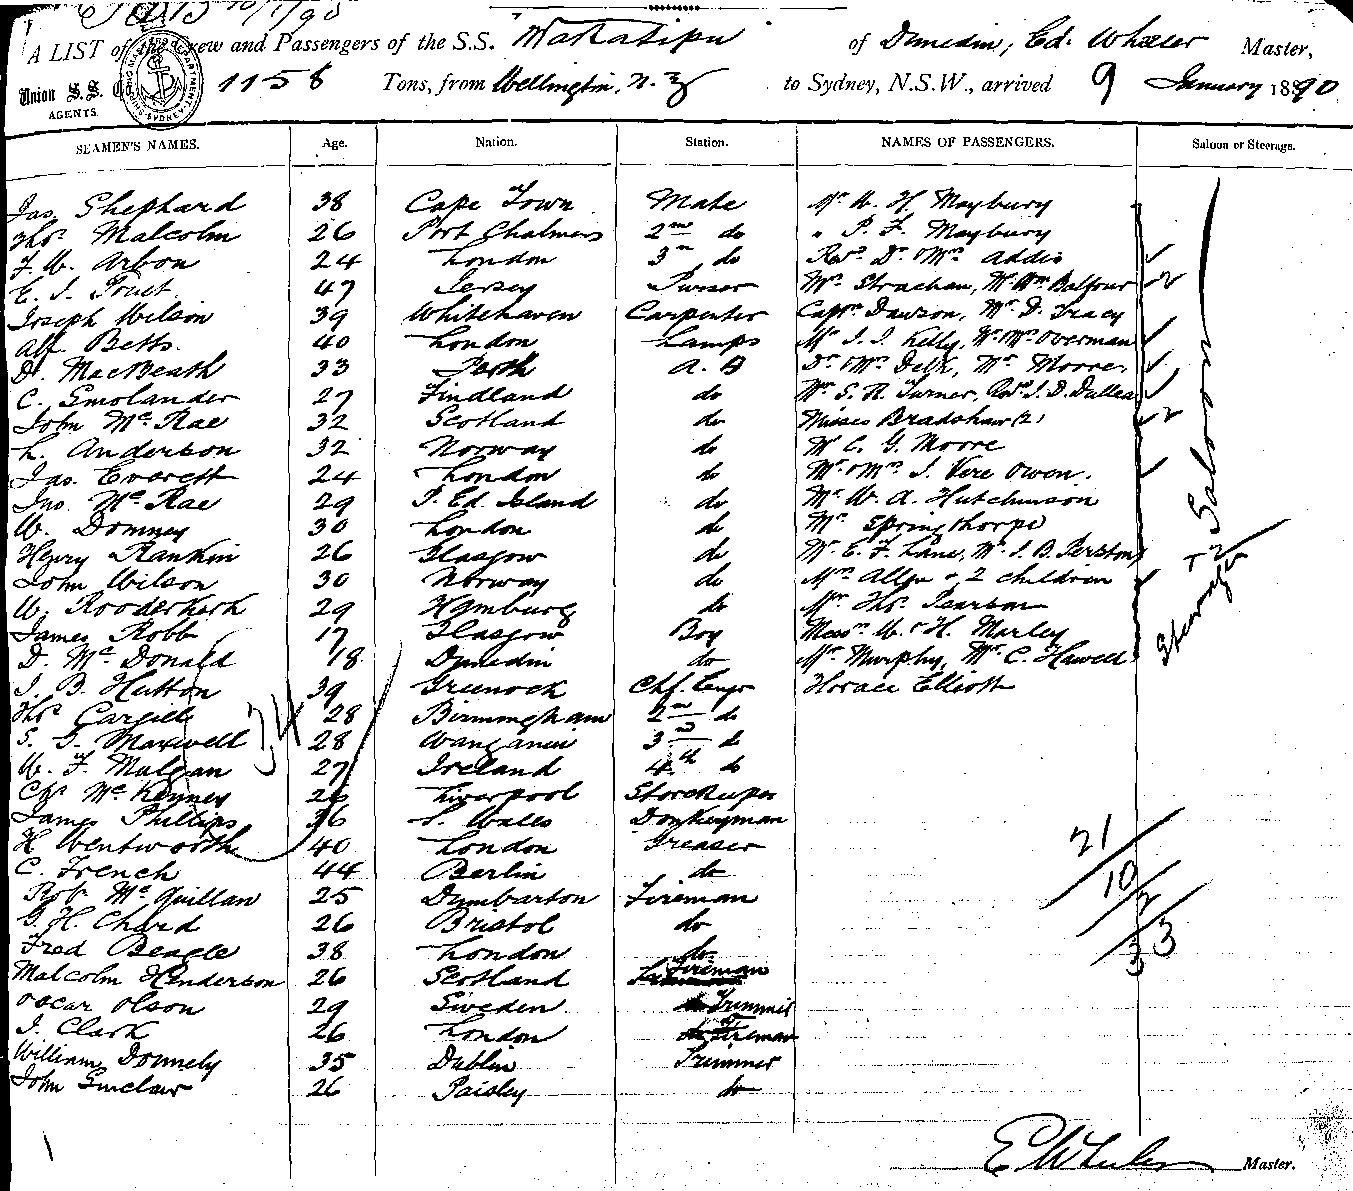 A LIST of the Crew and Passengers of the S.S. Wakatipu of Dunedin, Ed. Wheeler Master,
Union S. S. Co AGENTS. 1158 Tons, from Wellington, N.Z. to Sydney, N.S.W., arrived 9 January 1890
SEAMEN'S NAMES. Age. Nation. Station. NAMES OF PASSENGERS. Saloon or Steerage.
Jas. Shephard 38 Cape Town Mate Mr W. H Maybury
Thos Malcolm 26 Port Chalmers 2nd do " P. F. Maybury
F. W. Arbon 24 London 3rd do Revd Dr & Mrs Addis
E. I. Poust 47 Jersey Purser Mrs Strachan, Mr Wm Balfour
Joseph Wilson 39 Whitehaven Carpenter Captn Dawson, Mr D. Tracy
Alf. Betts. 40 London Lamps Mr J. J. Kelly, Mr & Mrs Overman
D. MacBeath 33 Perth A. B Dr & Mrs Delk, Mr Moore
C. Smolander 27 Findland do Mr S. R. Turner, Revd J. D.
John McRae 32 Scotland do Misses Bradshaw (2)
L. Anderson 32 Norway do Mr C. G. Moore
Jas. Everett 24 London do Mr & Mrs J. Vere Owen.
Jno. McRae 29 P. Ed. Island do Mr W. A. Hutchinson
W. Domney 30 London do Mr Springthorpe
Henry Rankin 26 Glasgow do Mr E. F. Lane, Mr J. B. Perston
John Wilson 30 Norway do Mrs Allen & 2 children
W. Rooderkerk 29 Hamburg do Mr Thos Pearson
James Robb 17 Glasgow Boy Messrs W. & H. Marley
D. McDonald 18 Dunedin do Mr Murphy, Mr C. Hawell
J. B. Hutton 39 Greenock Chf. Engr Horace Elliott
Thos Cargill 28 Birmingham 2nd do
S. G. Maxwell 28 Wanganui 3rd do
W. F. Mulgan 27 Ireland 4th do
Chs McKenney 26 Liverpool Storekeeper
James Phillips 36 S. Wales Donkeyman
H Wentworth 40 London Greaser
C. French 44 Berlin do
Rob. McQuillan 25 Dumbarton Fireman
G. H. Chard 26 Bristol do
Fred Beagle 38 London do
Malcolm Henderson 26 Scotland Fireman
Oscar Olson 29 Sweden Trimmer
J. Clark 26 London Fireman
William Donnely 35 Dublin Trimmer
John Sinclair 26 Paisley do
34
Saloon
Steerage
21
10
2
33
E Wheeler Master.